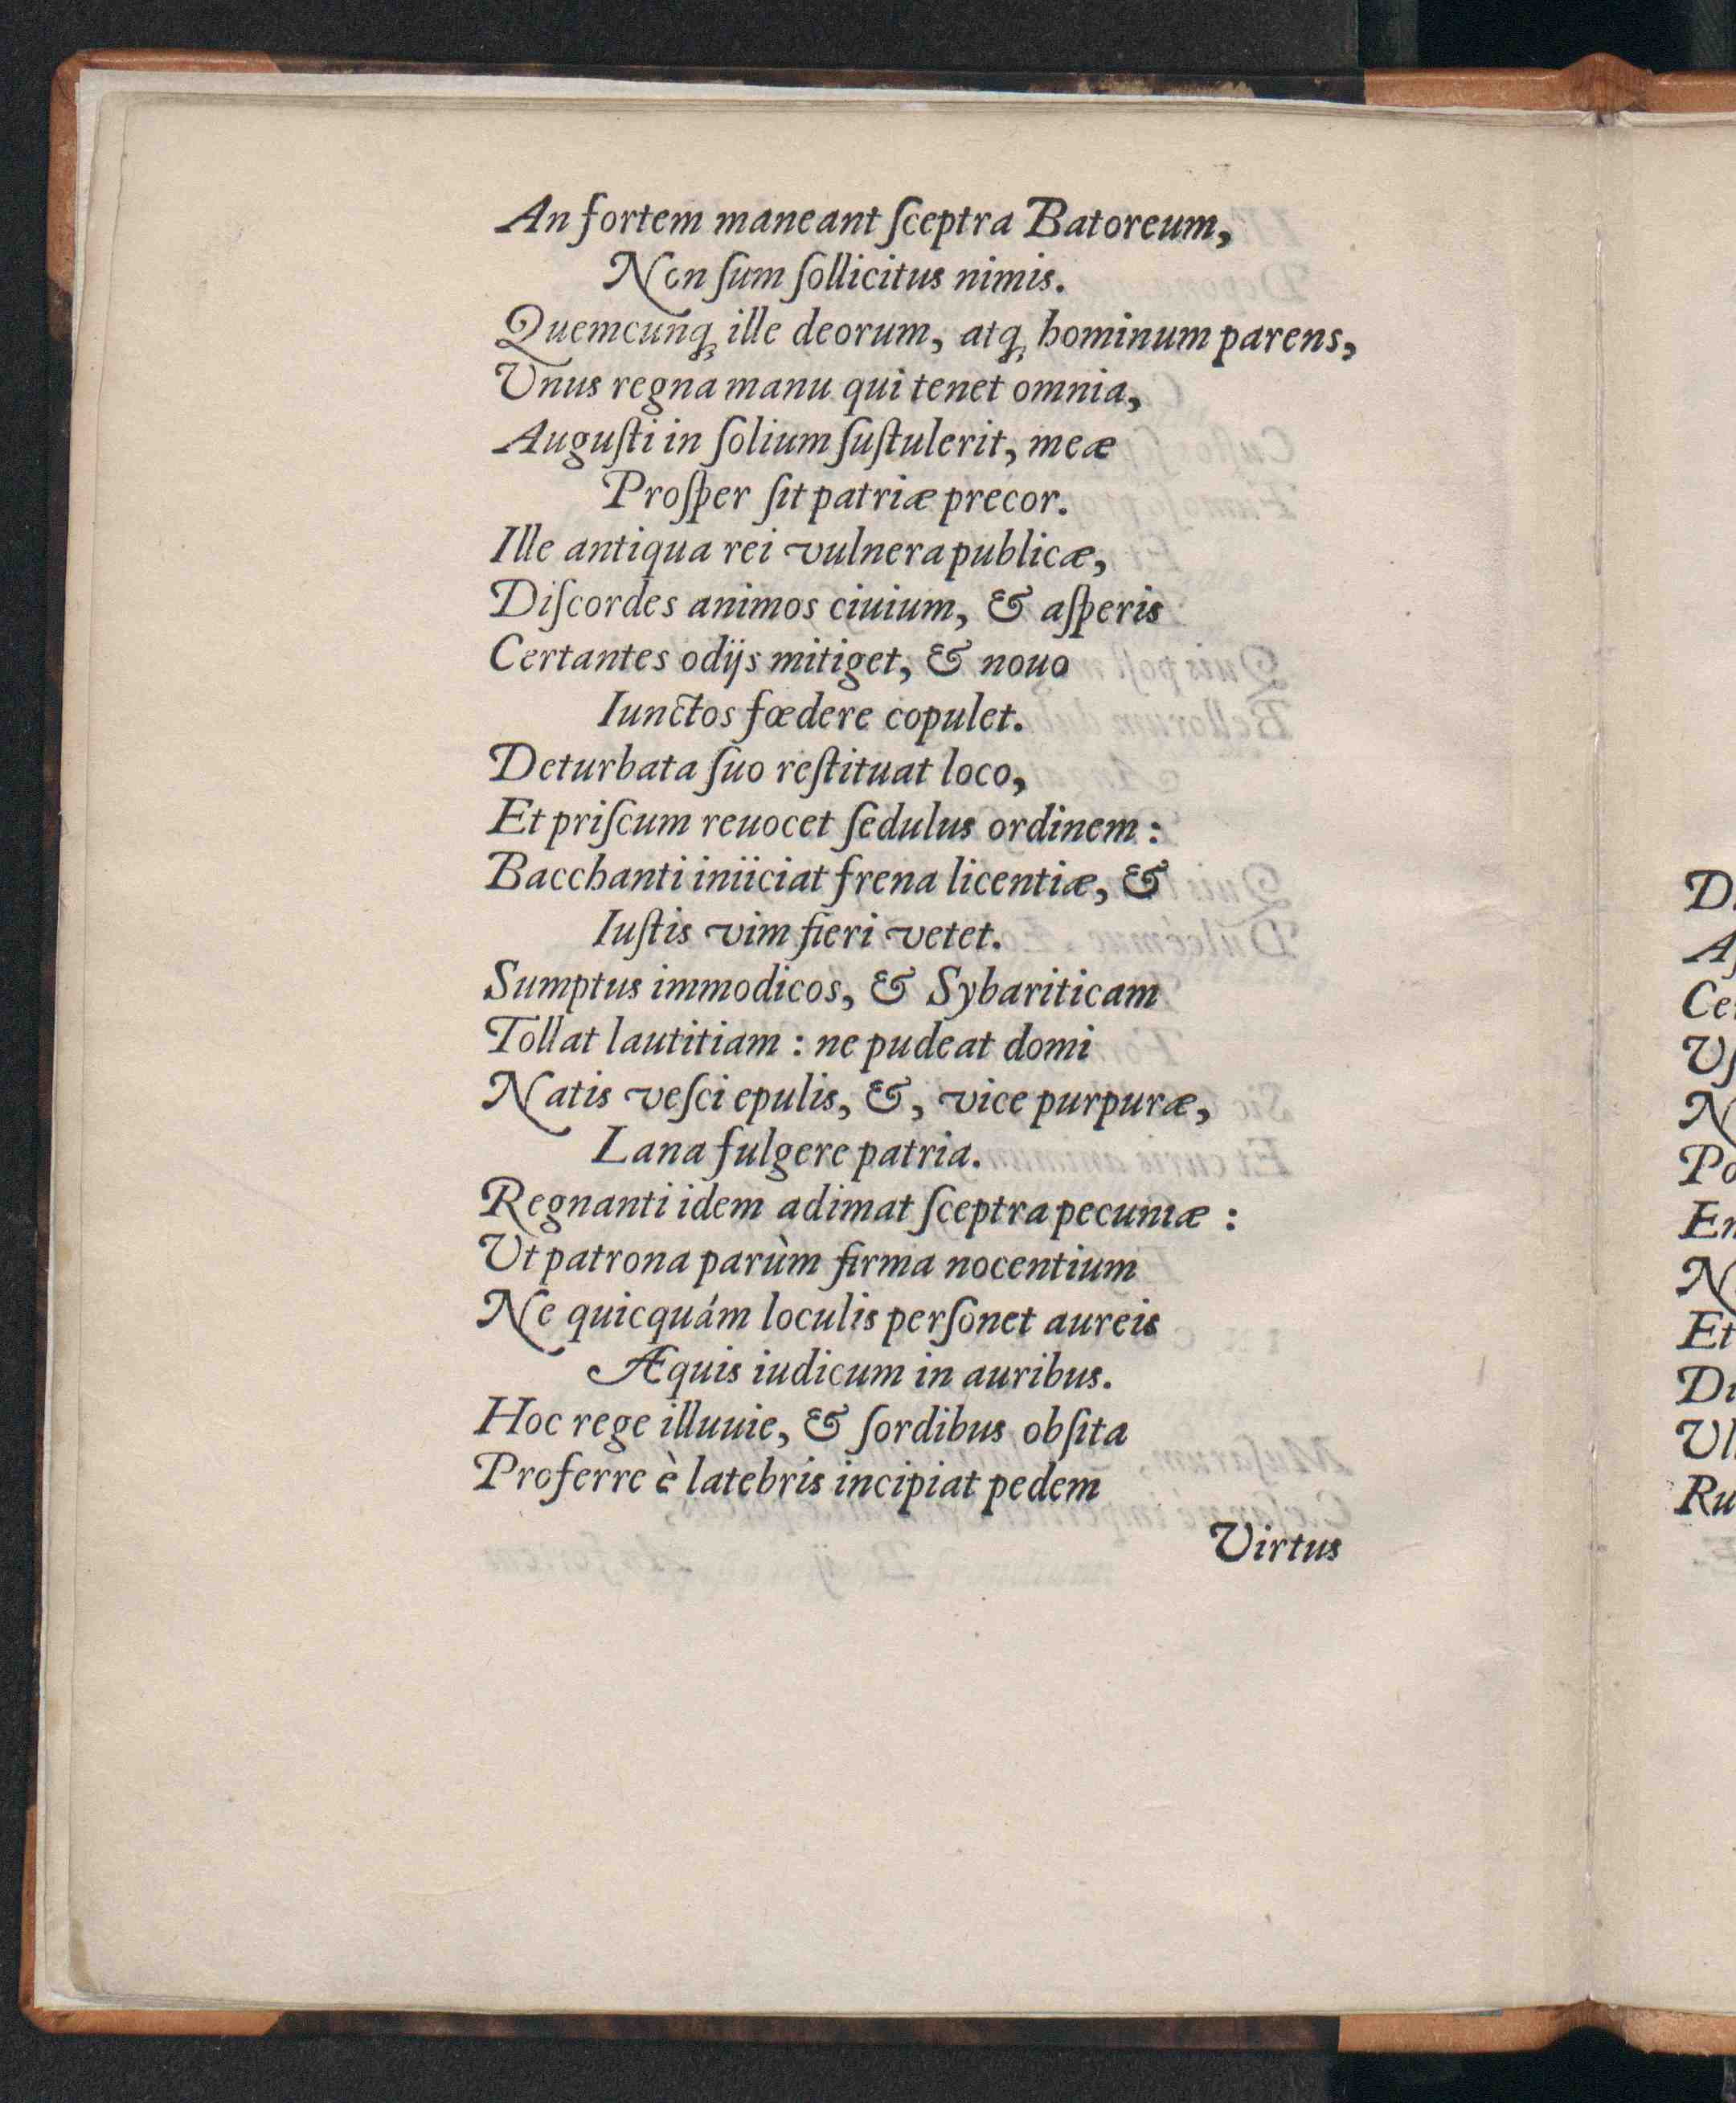 An fortem maneant ſceptra Batoreum,
Non ſum ſollicitus nimis.
Quemcunq́; ille deorum, atq́; hominum parens,
Unus regna manu qui tenet omnia,
Auguſti in ſolium ſuſtulerit, meæ
Proſper ſit patriæ precor.
Ille antiqua rei vulnera publicæ,
Diſcordes animos ciuium, & aſperis
Certantes odijs mitiget, & nouo
Iunctos fœdere copulet.
Deturbata ſuo reſtituat loco,
Et priſcum reuocet ſedulus ordinem:
Bacchanti iniiciat frena licentiæ, &
Iuſtis vim fieri vetet.
Sumptus immodicos, & Sybariticam
Tollat lautitiam: ne pudeat domi
Natis veſci epulis, &, vice purpuræ,
Lana fulgere patria.
Regnanti idem adimat ſceptra pecuniæ:
Ut patrona parùm firma nocentium
Ne quicquám loculis perſonet aureis
Æquis iudicum in auribus.
Hoc rege illuuie, & ſordibus obſita
Proferre è latebris incipiat pedem
Virtus